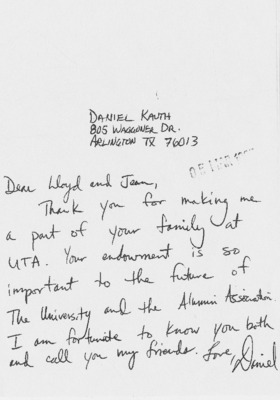 DANIEL KAUTH
805 WAGGONER DR.
ARLINGTON TX 76013
Dear Lloyd and Jean,
Thank you for making me
a part of your family at
UTA. Your endowment is so
important to the future of
The University and the Alumni Association.
I am fortunate to know you both
and call you my friends. Love, Daniel